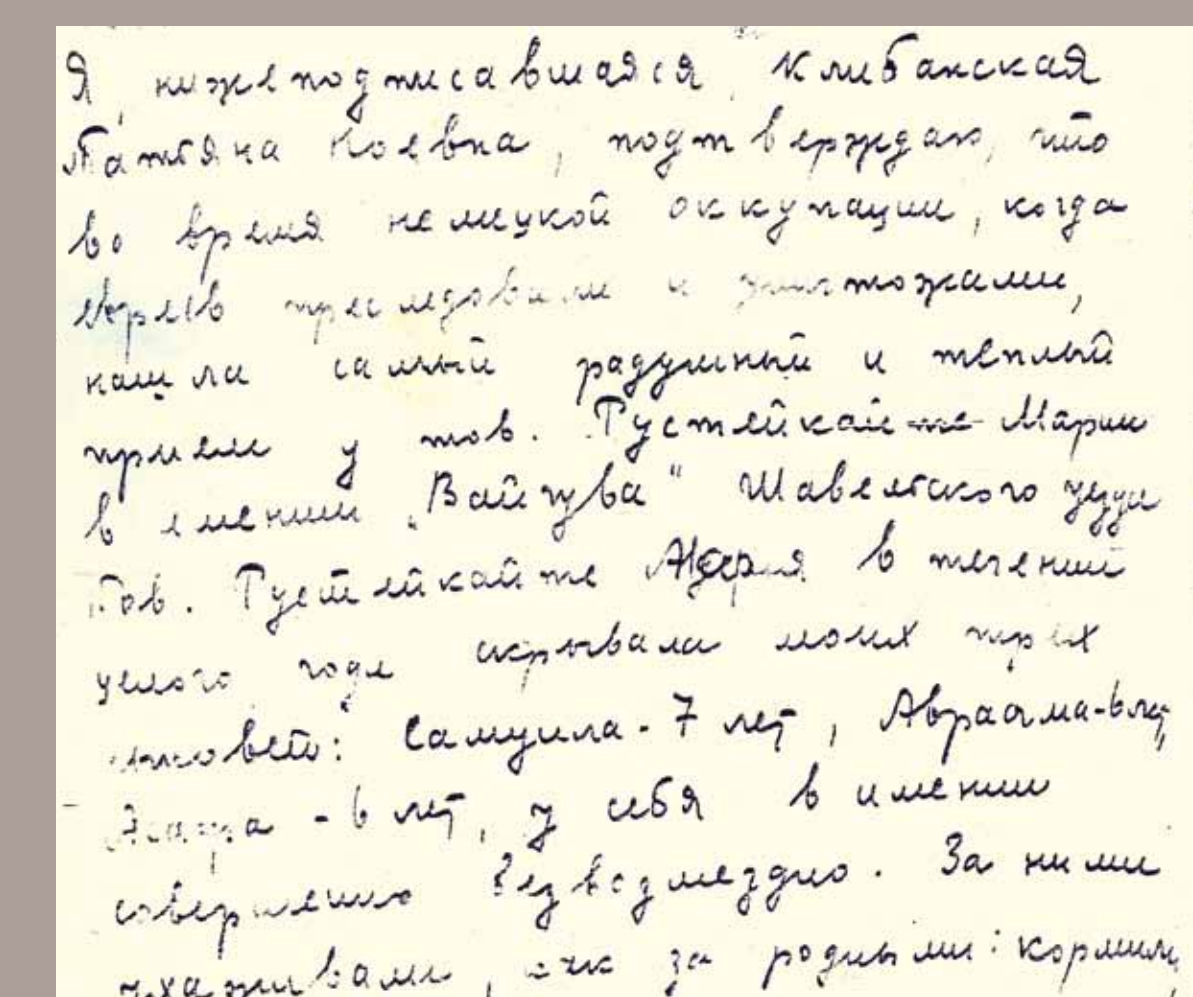 Я, нижеподписавшаяся, Клибанская
Татьяна Ноевна, подтверждаю, что
во время немецкой оккупации, когда
евреев преследовали и уничтожали,
нашла самый радушный и теплый
прием у тов. Густейкайте Марии
в имении „Вайгува" Шавельского уезда
Тов. Густейкайте Мария в течений
целого года скрывала моих трех
сыновей: Самуила - 7 лет, Авраама - 6 лет,
- 6 лет, у себя в имении
совершенно безвозмездно. За ними
ухаживали, как за родными: кормили,